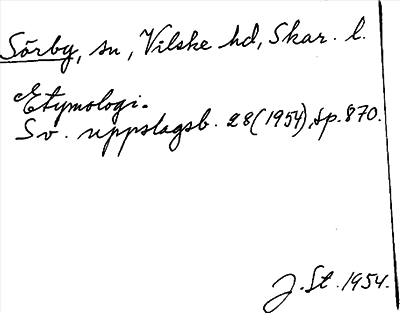 Sörby, sn, Vilske hd, Skar. l.
Etymologi.
Sv. uppslagsb. 28(1954), sp. 870.
J. St. 1954.